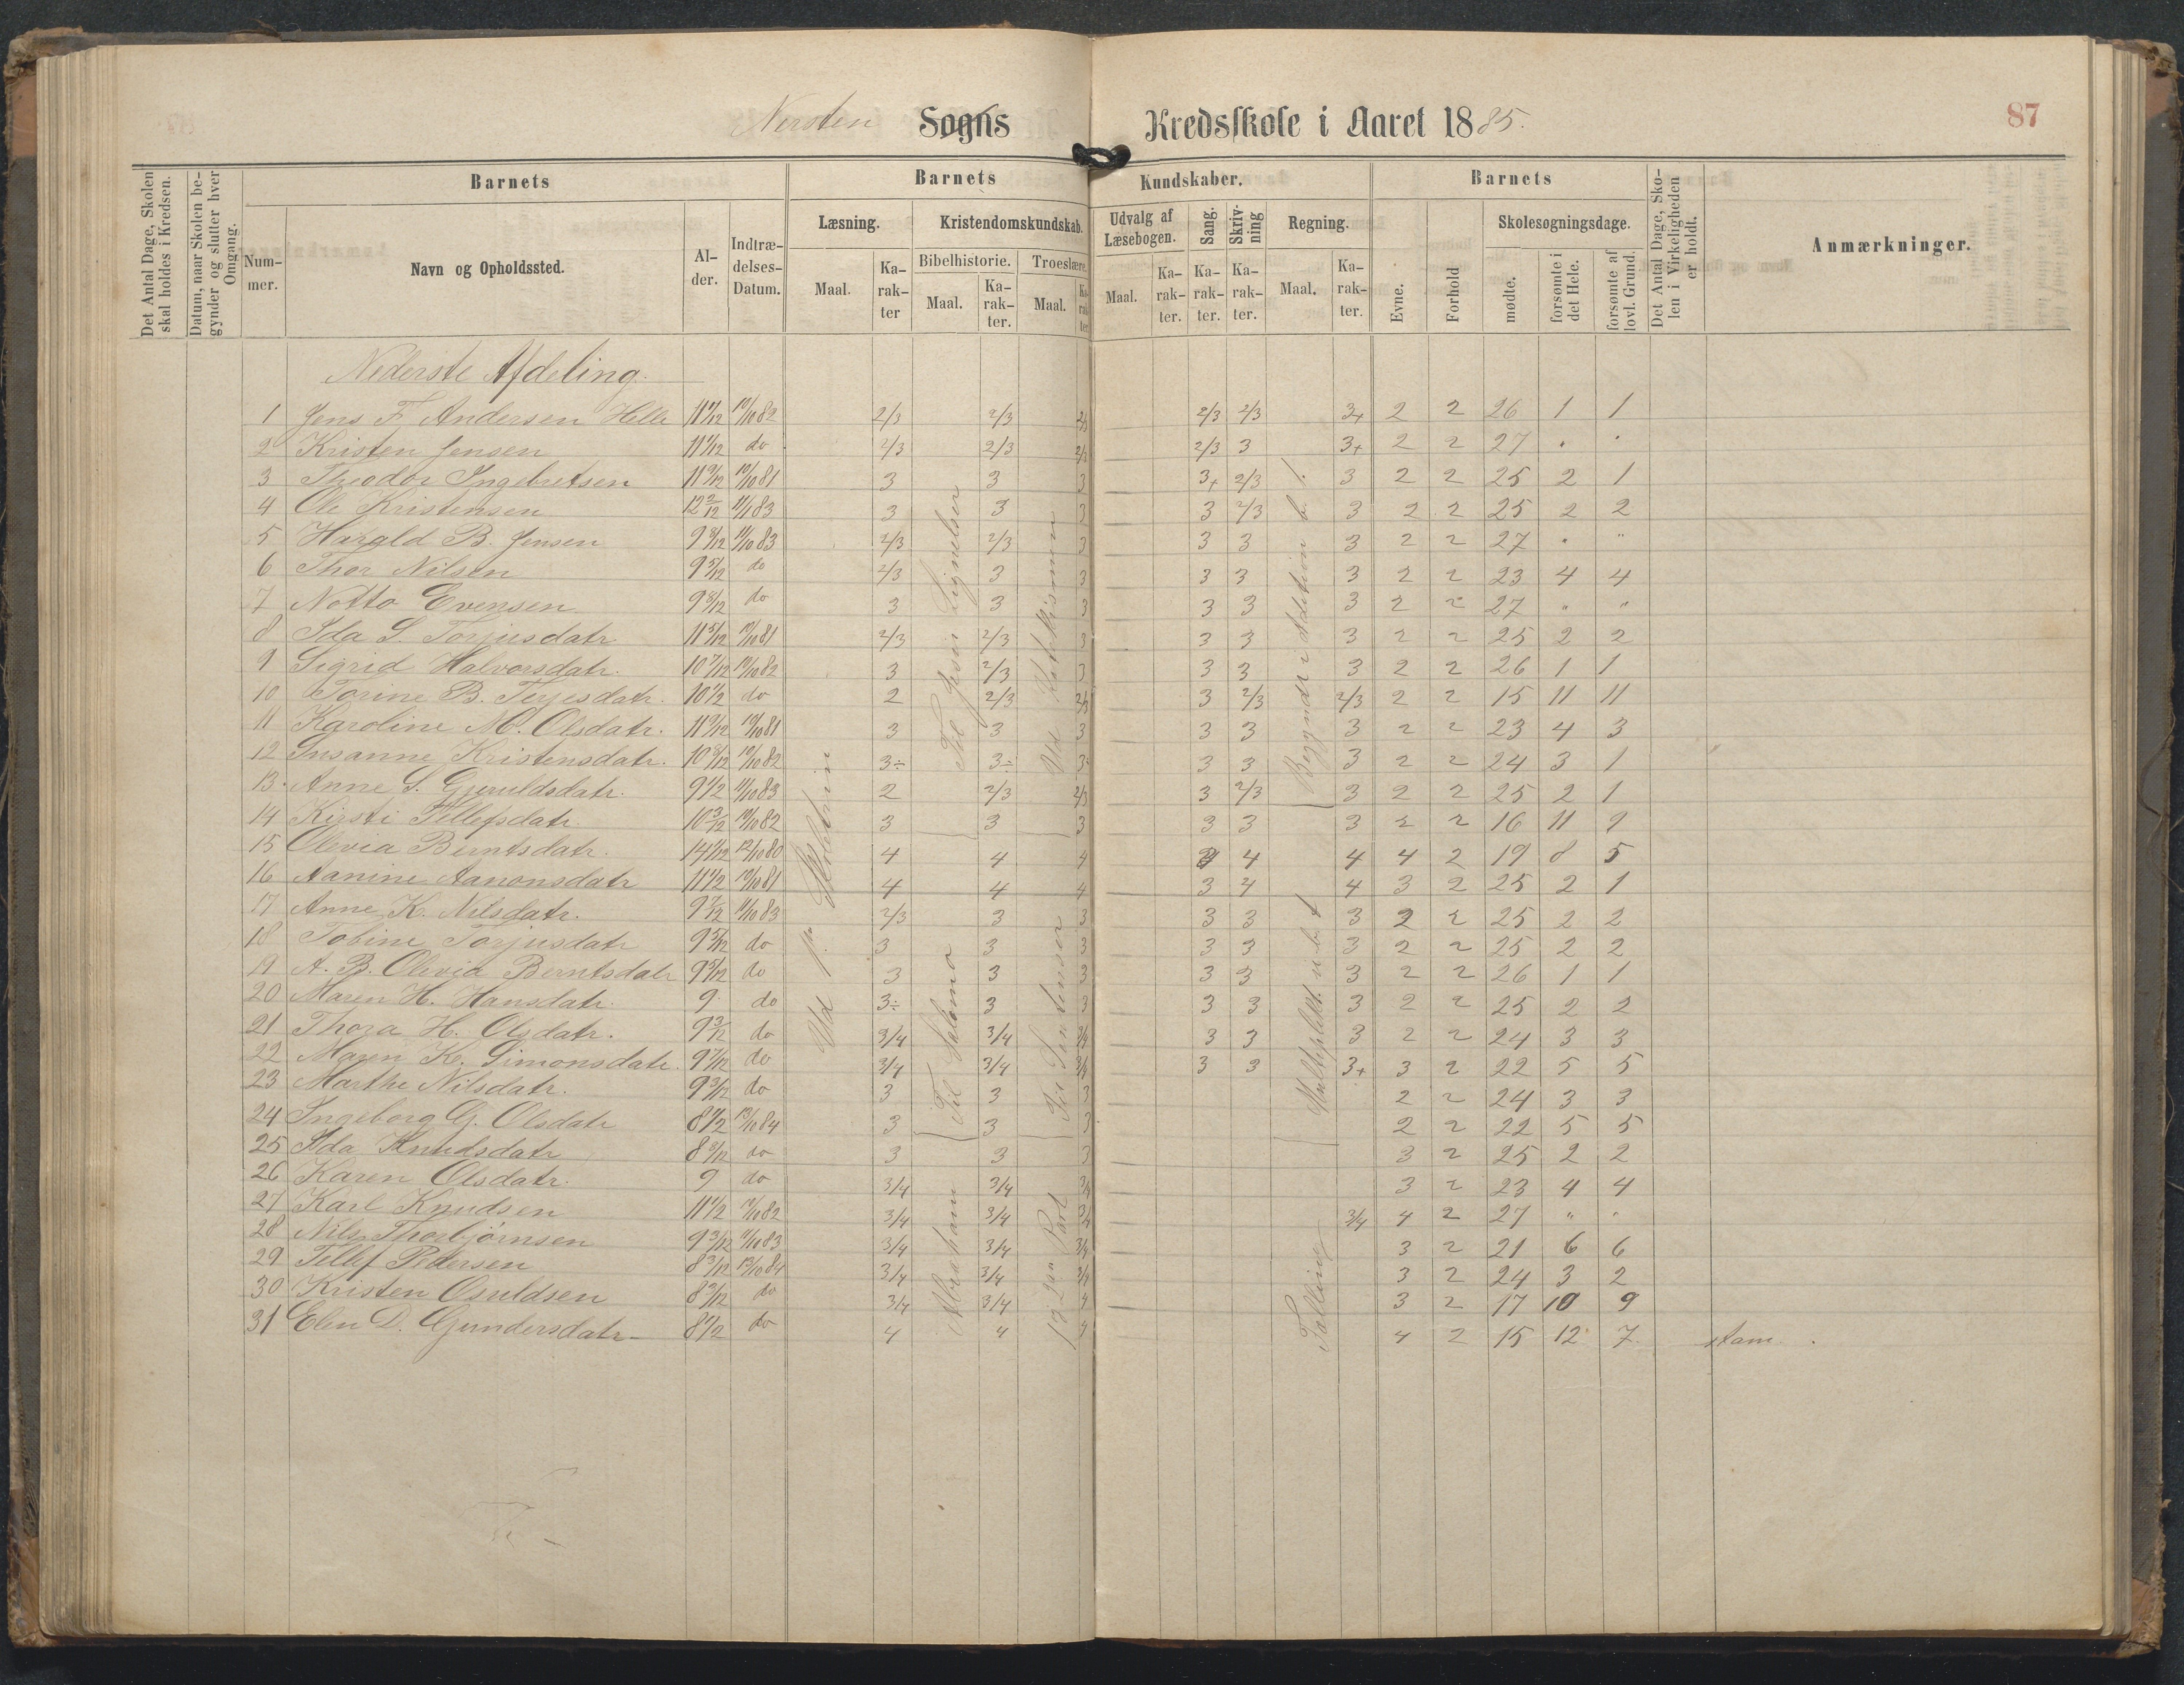 Nersten Sogns Kredsskole i Aaret 1885.
87
Det Antal Dage, Skolen skal holdes i Kredsen.
Datum, naar Skolen begynder og slutter hver Omgang.
Barnets
Nummer.
Navn og Opholdssted.
Alder.
Indtrædelses-Datum.
Barnets Kundskaber.
Læsning.
Maal.
Karakter
Kristendomskundskab.
Bibelhistorie.
Maal.
Karakter.
Troeslære.
Maal.
Karakter
Udvalg af Læsebogen.
Maal.
Karakter.
Sang.
Karakter.
Skrivning
Karakter.
Regning.
Maal.
Karakter.
Barnets
Evne.
Forhold
Skolesøgningsdage.
mødte.
forsømte i det Hele.
forsømte af lovl. Grund.
Det Antal Dage, Skolen i Virkeligheden er holdt.
Anmærkninger.
Nederste Afdeling.
1 Jens F. Andersen Helle 11 11/10 82 2/3 2/3 2/3 2/3 2/3 3+ 2 2 26 1 1
2 Kristen Jensen do 2/3 2/3 2/3 2/3 3 3+ 2 2 27 " "
3 Theodor Ingebretsen 11 9/12 10/10 81 3 3 3 3+ 2/3 3 2 2 25 2 1
4 Ole Kristensen 12 2/12 11/1 83 3 3 3 3 2/3 3 2 2 25 2 2
5 Harald B. Jensen 9 8/12 11/10 83 2/3 2/3 3 3 3 3 2 2 27 " "
6 Thor Nilsen 9 5/12 do 2/3 3 3 3 3 3 2 2 23 4 4
7 Notto Evensen 9 8/12 do 3 3 3 3 3 3 2 2 27 " "
8 Ida S. Torjusdatr 11 5/12 10/10 81 2/3 2/3 3 3 3 3 2 2 25 2 2
9 Sigrid Halvorsdatr. 10 7/12 10/10 82 3 2/3 3 3 3 3 2 2 26 1 1
10 Torine B. Terjesdatr. 10 1/2 do 2 2/3 2/3 3 2/3 2/3 2 2 15 11 11
11 Karoline M. Olsdatr. 11 9/12 10/10 81 3 3 3 3 3 3 2 2 23 4 3
12 Susanne Kristensdatr. 10 8/12 10/10 82 3÷ 3÷ 3÷ 3 3 3 2 2 24 3 1
13 Anne S. Gjeruldsdatr. 9 1/2 11/10 83 2 2/3 2/3 3 2/3 3 2 2 25 2 1
14 Kirsti Tellefsdatr. 10 3/12 10/10 82 3 3 3 3 3 3 2 2 16 11 9
15 Olevia Berntsdatr. 12/10 80 4 4 4 4 4 4 2 19 8 5
16 Aanine Aanonsdatr 11 1/2 10/10 81 4 4 4 3 4 4 3 2 25 2 1
17 Anne K. Nilsdatr. 9 7/12 11/10 83 2/3 3 3 3 3 3 2 2 25 2 2
18 Tobine Torjusdatr 9 5/12 do 3 3 3 3 3 3 2 2 25 2 2
19 A. B. Olevia Berntsdatr 9 5/12 do 3 3 3 3 3 3 2 2 26 1 1
20 Maren H. Hansdatr. 9 do 3÷ 3 3 3 3 3 2 2 25 2 2
21 Thora H. Olsdatr. 9 3/12 do 3/4 3/4 3/4 3 3 3 2 2 24 3 3
22 Maren K. Simonsdatr. 9 7/12 do 3/4 3/4 3/4 3 3 3+ 3 2 22 5 5
23 Marthe Nilsdatr. 9 3/12 do 3 3 3 2 2 24 3 3
24 Ingeborg G. Olsdatr 8 1/2 13/10 84 3 3 3 2 2 22 5 5
25 Ida Knudsdatr 8 9/12 do 3 3 3 3 2 25 2 2
26 Karen Olsdatr. 9 do 3/4 3/4 3/4 3 2 23 4 4
27 Karl Knudsen 11 1/2 10/10 82 3/4 3/4 3/4 3/4 4 2 27 " "
28 Nils Thorbjørnsen 9 3/12 11/10 83 3/4 3/4 3/4 3 2 21 6 6
29 Tellef Pedersen 8 3/12 13/10 84 3/4 3/4 3/4 3 2 24 3 2
30 Kristen Osuldsen 8 9/12 do 3/4 3/4 4 3 2 17 10 9
31 Elen D. Gundersdatr. 8 1/2 do 4 4 4 4 2 15 12 7 stam.
Til Jesu Lignelser
Til Salomo
Abraham
1 og 2den Part
Begyndt i Addition
Tælling